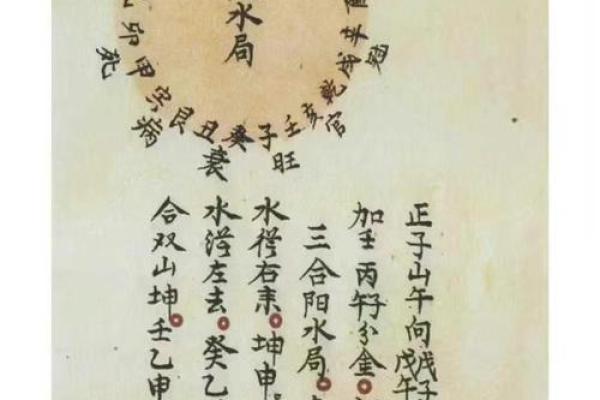 水局
卯甲寅艮丑癸子壬亥乾戌辛
死病衰旺官冠
正子山午向戊子戊午
加壬丙子午分金。
三合阳水局。
水從右来。坤申
水從左去。癸乙
合双山坤。壬乙申